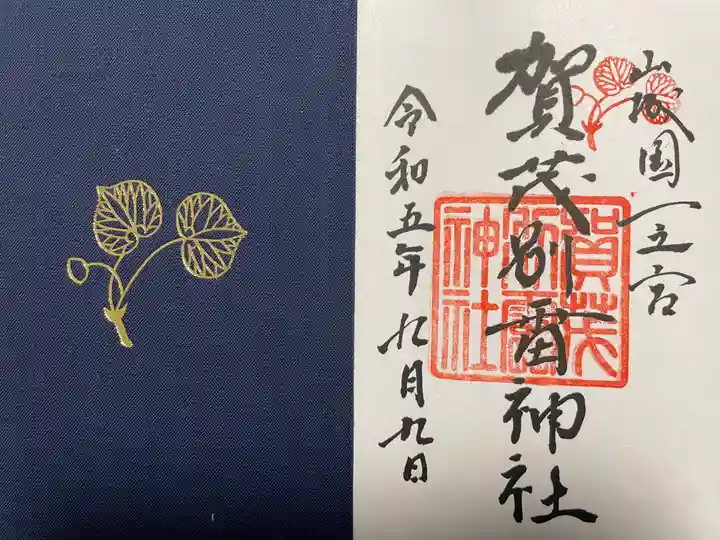 山城国一之宮
賀茂別雷神社
賀茂別雷神社
令和五年九月九日